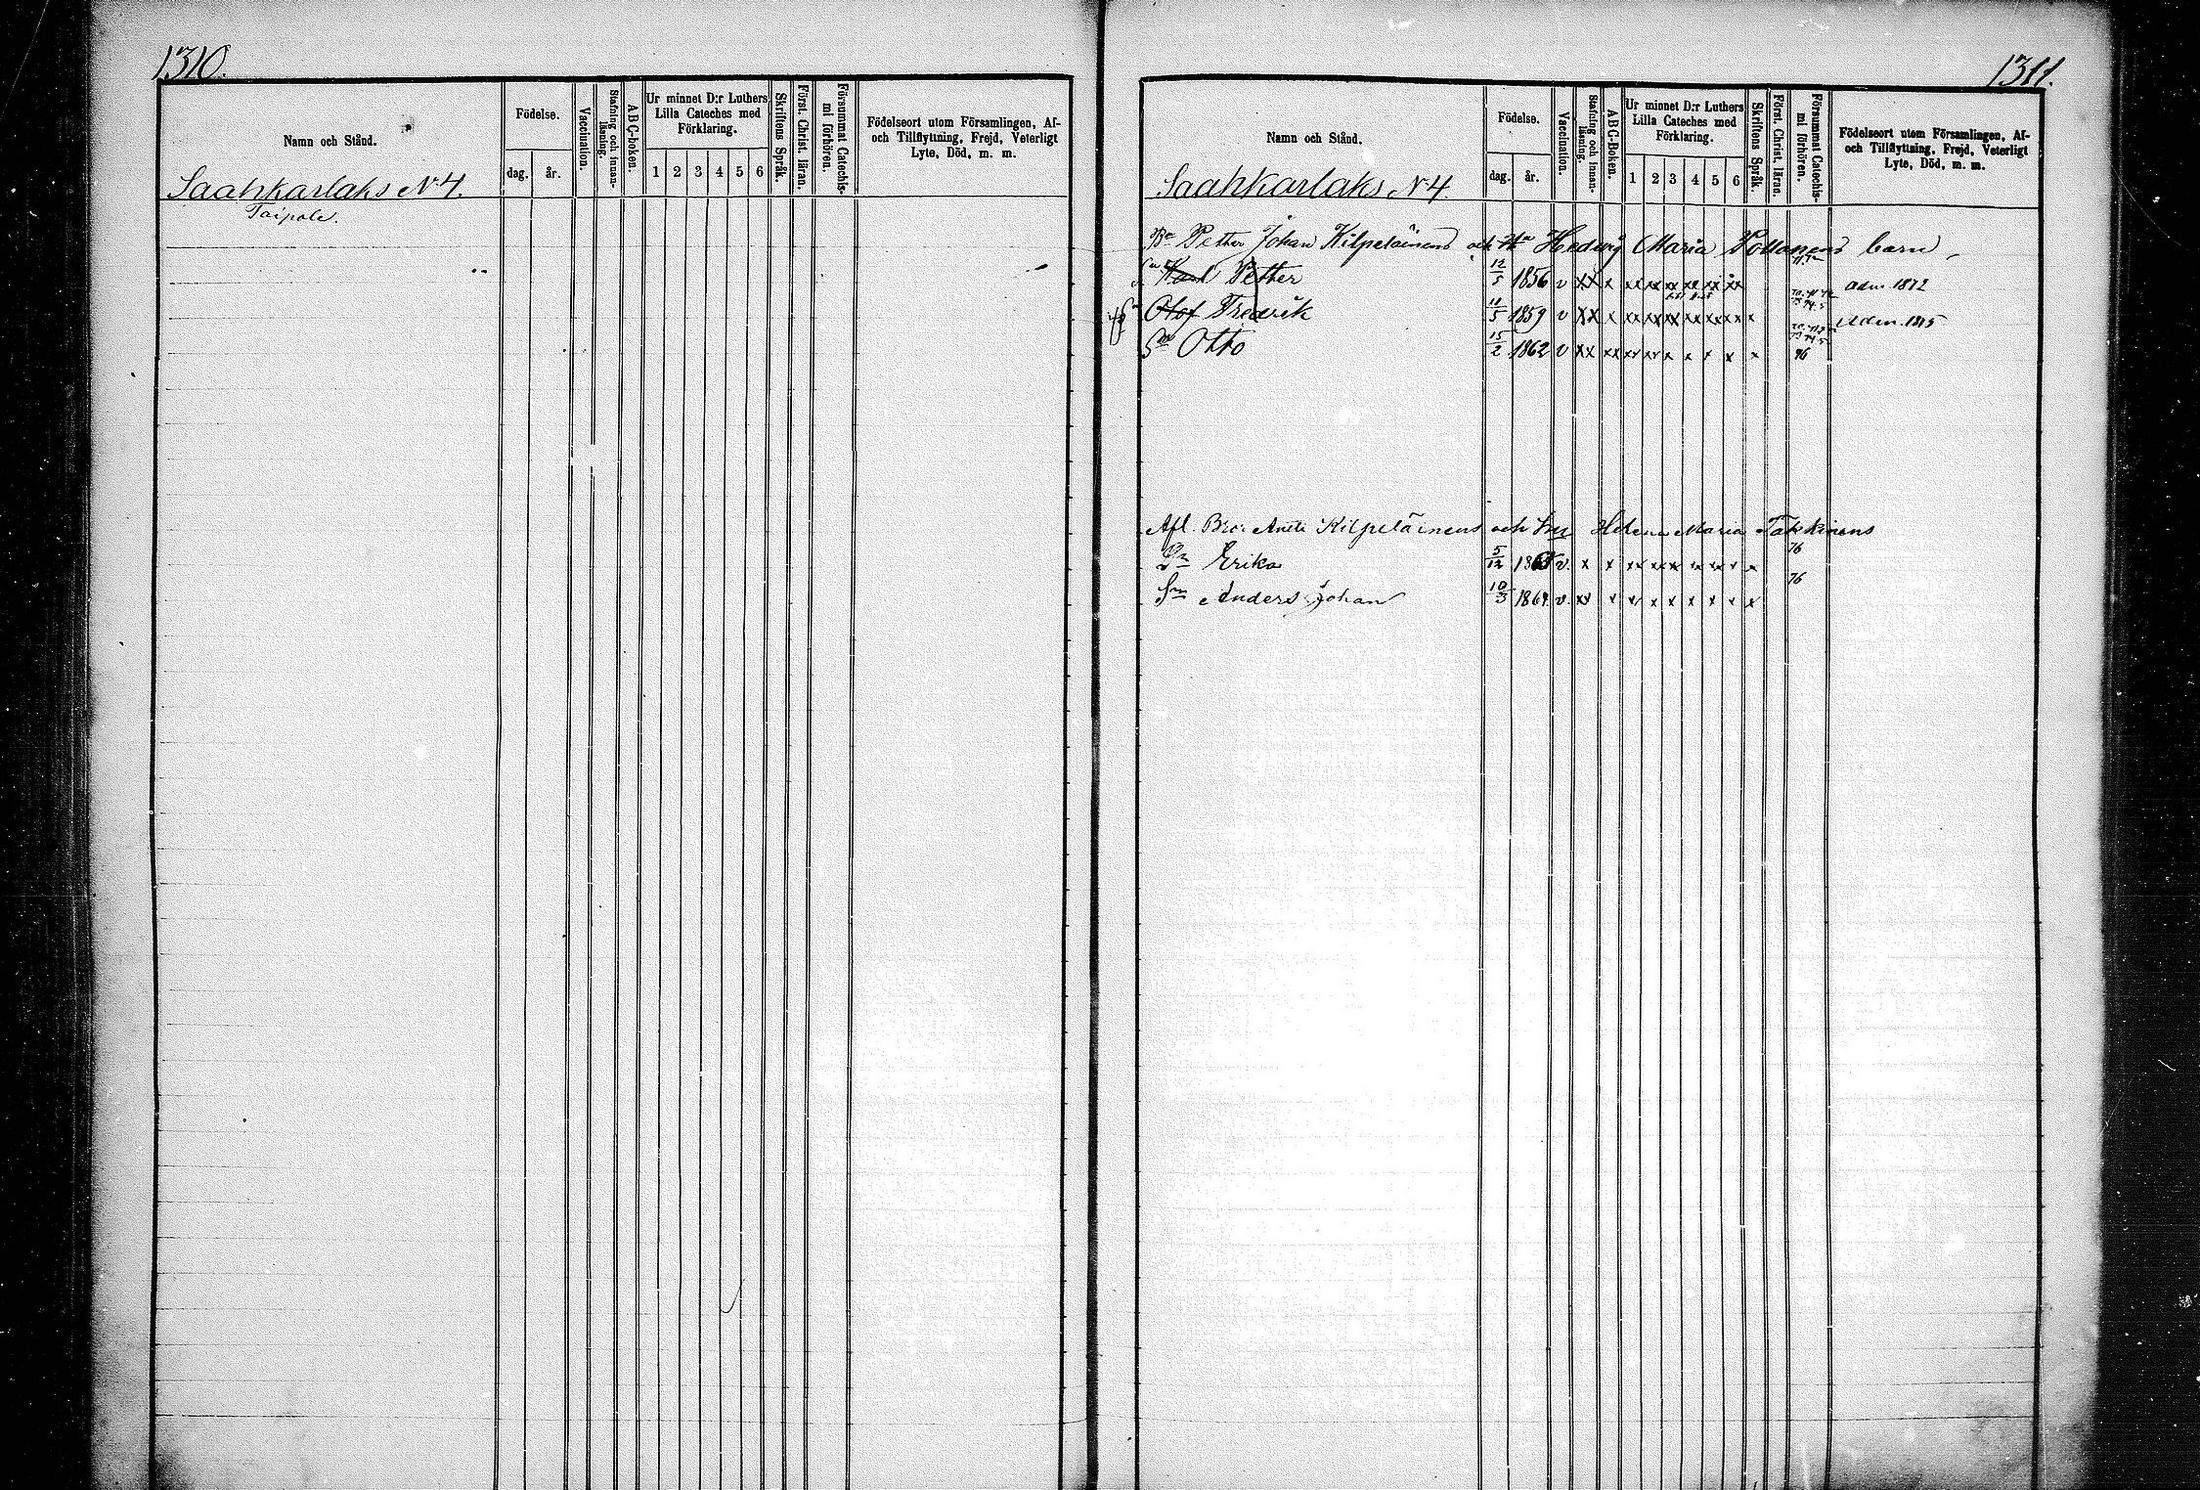 1310.
Namn och Stånd.
Födelse.
dag.
år.
Vaccination.
Stafning och innanläsning.
ABC-boken.
Ur minnet D:r Luthers Lilla Cateches med Förklaring.
1 2 3 4 5 6
Skriftens Språk.
Först. Christ. läran.
Försummat Catechismi förhören.
Födelseort utom Församlingen, Af- och Tillflyttning, Frejd, Veterligt Lyte, Död, m. m.
Saahkarlaks N 4.
Taipale.
1311.
Namn och Stånd.
Födelse.
dag.
år.
Vaccination.
Stafning och innanläsning.
ABC-Boken.
Ur minnet D:r Luthers Lilla Cateches med Förklaring.
1 2 3 4 5 6
Skriftens Språk.
Först. Christ. läran.
Försummat Catechismi förhören.
Födelseort utom Församlingen, Af- och Tillflyttning, Frejd, Veterligt Lyte, Död, m. m.
Saahkarlaks N 4.
Petter Johan Kilpeläinens och Hedvig Maria barn
Petter 12/5 1856 v xx x xx xx xx xx xx xx adm 1872
Olof Fredrik 11/5 1859 v xx x xx xx xx xx xx xx x Adm. 1875
Sn Otto 15/2 1862 v xx xx xx xx x x x x x 76
Afl. Bror Antti Kilpeläinens och Helena Maria Takkinens
Dr Erika 5/12 v. x x xx xx xx xx xx x x 76
Sn Anders Johan 10/3 1864. v. xx x xx x x x x x x 76